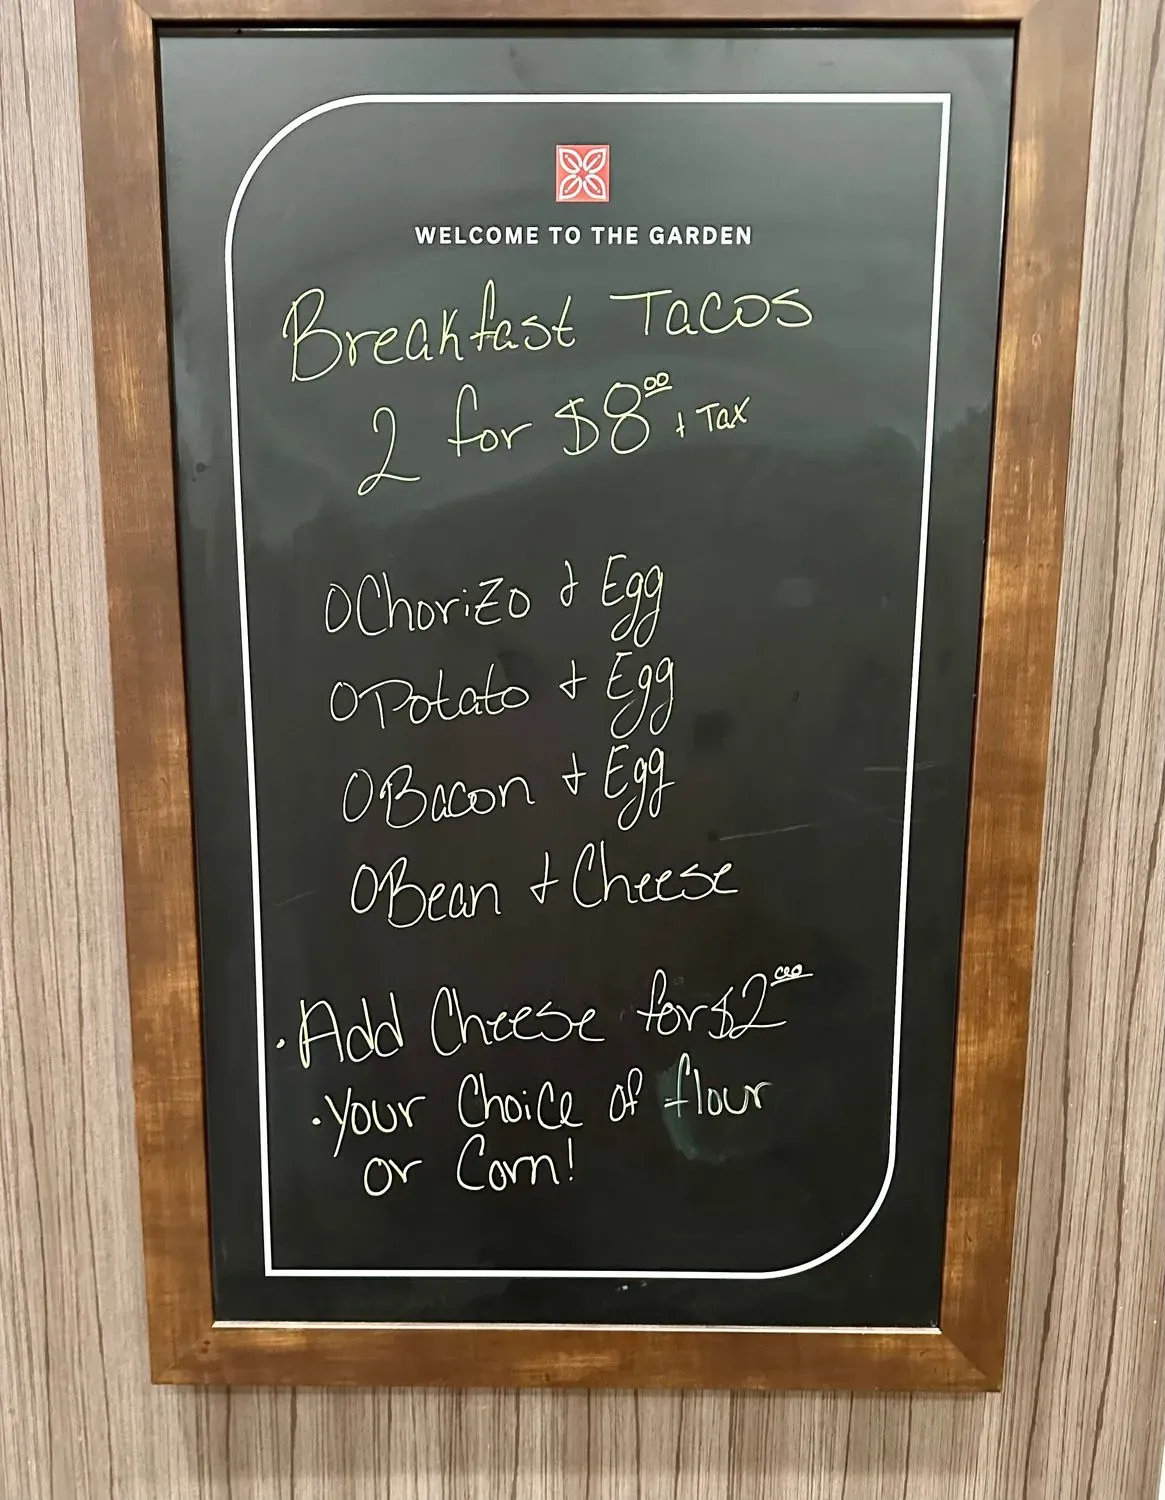 WELCOME TO THE GARDEN
Breakfast Tacos
2 for $8.00 + Tax
O Chorizo & Egg
O Potato & Egg
O Bacon & Egg
O Bean & Cheese
· Add Cheese for $2.00
· Your Choice of flour
or Corn!